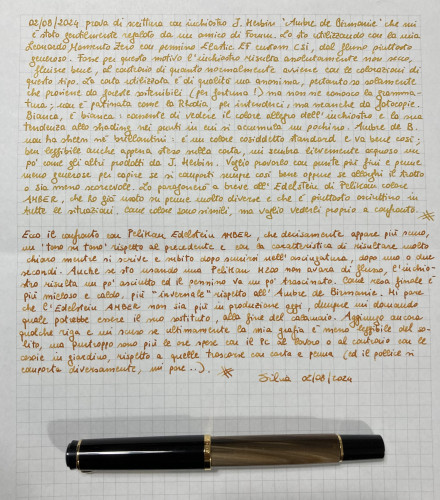 02/08/2024 prova di scrittura con inchiostro J. Herbin "Ambre de Birmanie" che mi
è stato gentilmente regalato da un amico di Forum. Lo sto utilizzando con la mia
Leonardo Momento Zero con pennino Elastic EF custom CSI, dal flusso piuttosto
generoso. Forse per questo motivo l'inchiostro risulta assolutamente non secco,
fluisce bene, al contrario di quanto normalmente avviene con le colorazioni di
questo tipo. La carta utilizzata è di qualità ma anonima, pertanto so solamente
che proviene da foreste sostenibili (per fortuna!) ma non ne conosco la gramma-
tura; non è patinata come la Rhodia, per intenderci, ma neanche da fotocopie.
Bianca, è bianca: consente di vedere il colore allegro dell'inchiostro e la sua
tendenza allo shading nei punti in cui si accumula un pochino. Ambre de B.
non ha sheen né brillantini: è un colore cosiddetto standard e va bene così;
ben leggibile anche appena steso sulla carta, mi sembra lievemente acquoso un
po' come gli altri prodotti da J. Herbin. Voglio provarlo con punte più fini e penne
meno generose per capire se si comporti sempre così bene oppure se allunghi il tratto
o sia meno scorrevole. Lo paragonerò a breve all'Edelstein di Pelikan colore
AMBER, che ho già usato su penne molto diverse e che è piuttosto asciuttino in
tutte le situazioni. Come colore sono simili, ma voglio vederli proprio a confronto.
Ecco il confronto con Pelikan Edelstein AMBER, che decisamente appare più scuro,
un "tono su tono" rispetto al precedente e con la caratteristica di risultare molto
chiaro mentre si scrive e subito dopo scurirsi nell'asciugatura, dopo uno o due
secondi. Anche se sto usando una Pelikan M200 non avara di flusso, l'inchio-
stro risulta un po' asciutto ed il pennino va un po' trascinato. Come resa finale è
più mieloso e caldo, più "invernale" rispetto all'Ambre de Birmanie. Mi pare
che l'Edelstein AMBER non sia più in produzione oggi, dunque mi domando
quale potrebbe essere il suo sostituto, alla fine del calamaio. Aggiungo ancora
qualche riga e mi scuso se ultimamente la mia grafia è meno leggibile del so-
lito, ma purtroppo sono più le ore spese con il PC al lavoro o al contrario con le
cesoie in giardino, rispetto a quelle trascorse con carta e penna (ed il pollice si
comporta diversamente, mi pare..).
Silvia 02/08/2024